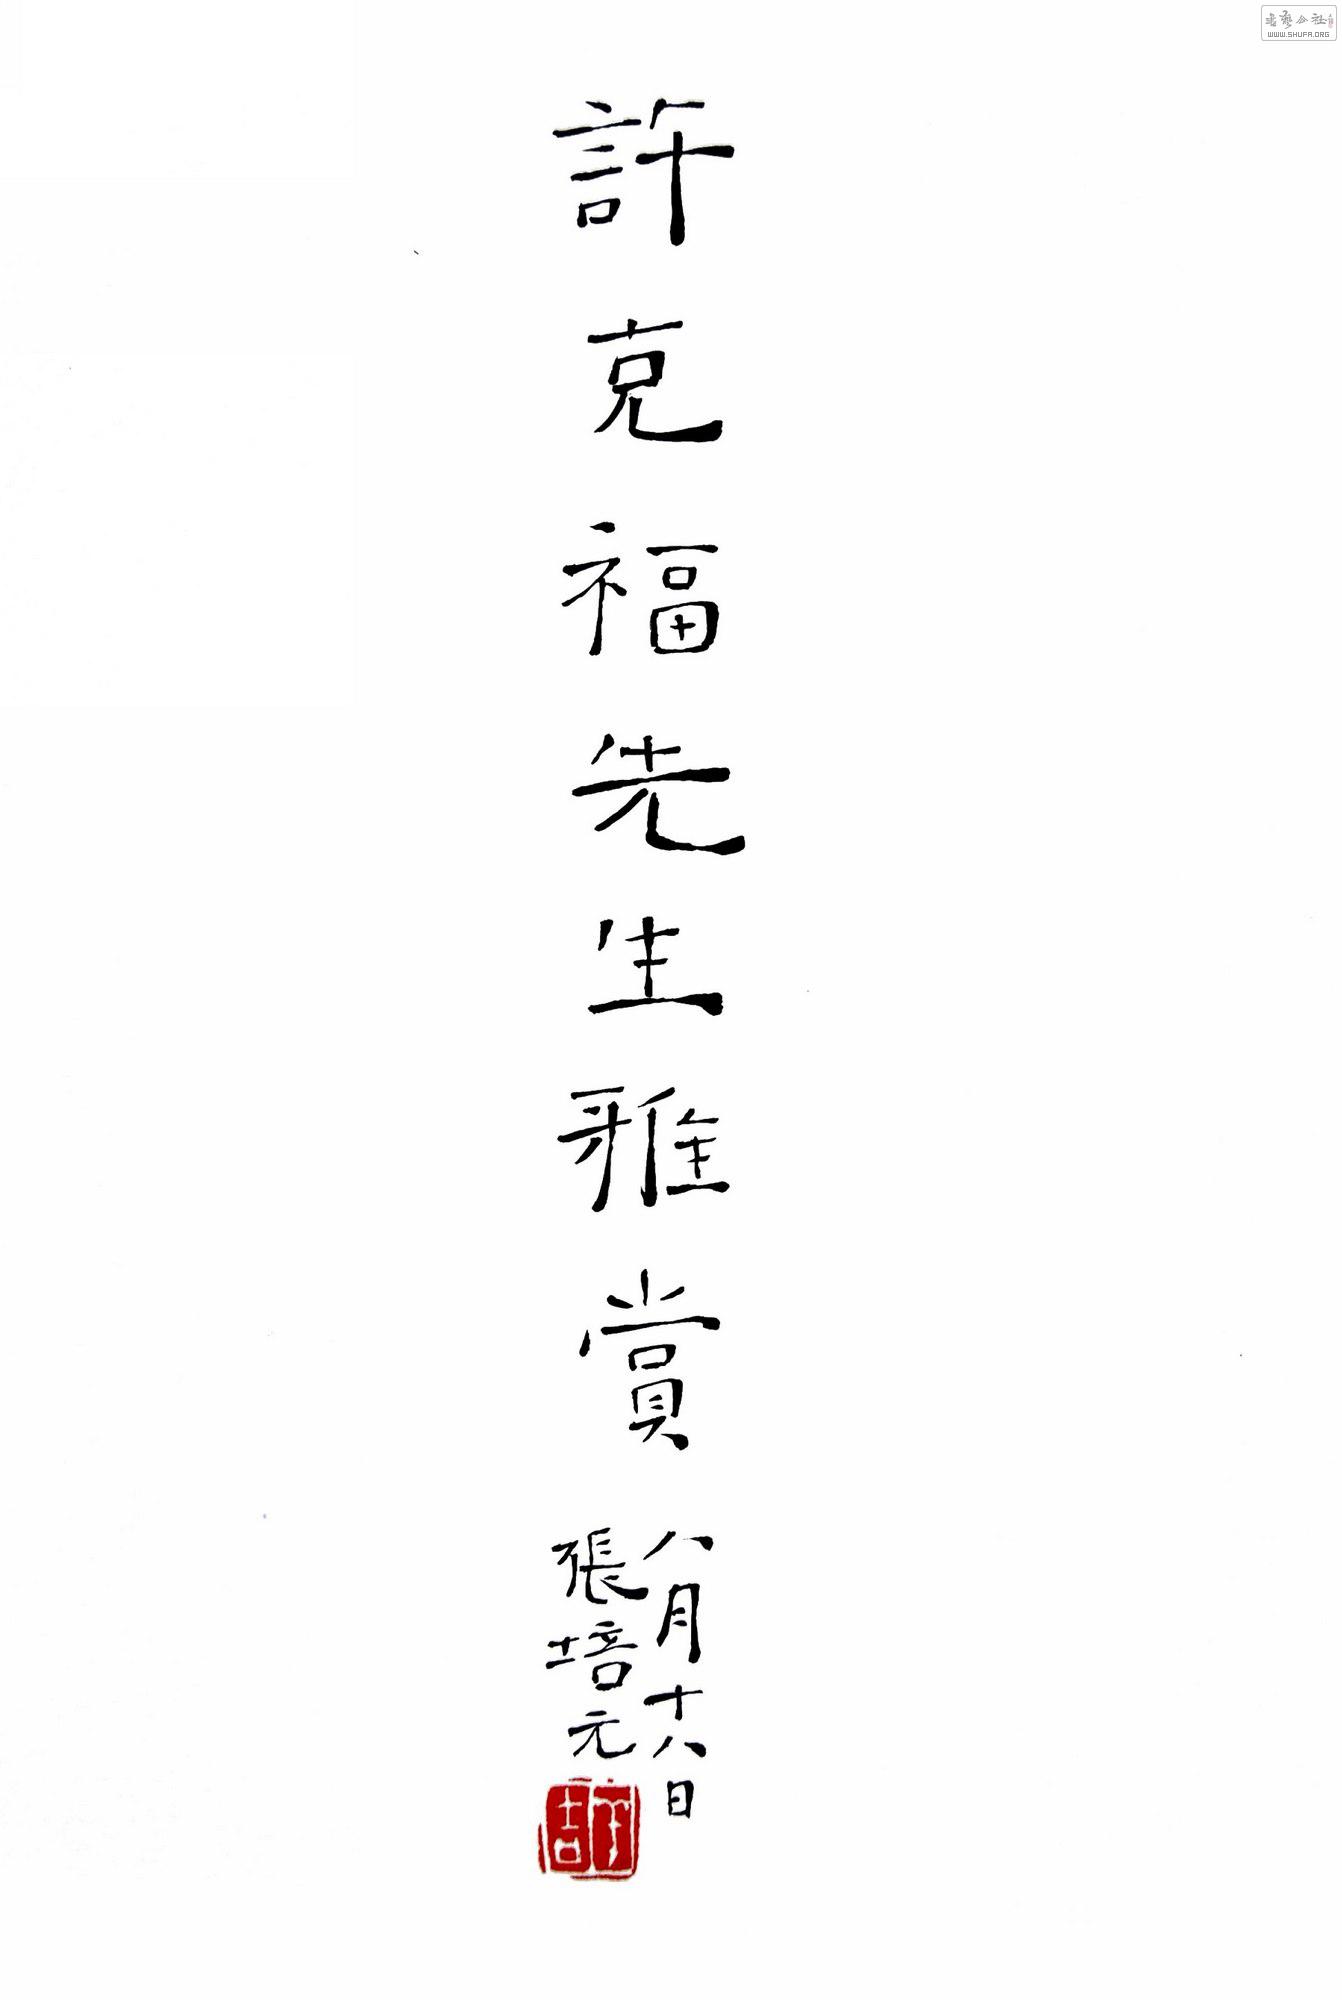 許克福先生雅賞
八月十八日
張培元
書藝公社
WWW.SHUFA.ORG